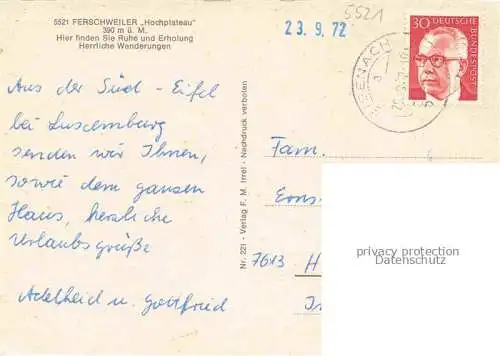 5521 FERSCHWEILER „Hochplateau"
390 m ü. M.
Hier finden Sie Ruhe und Erholung
Herrliche Wanderungen
23.9.72
5521
30 DEUTSCHE
BUNDESPOST
Aus der Süd-Eifel
bei Luxemburg
senden wir Ihnen,
sowie dem ganzen
Haus, herzliche
Urlaubsgrüße
Adelheid u. Gottfried
Nr. 221 - Verlag F. M. Irrel - Nachdruck verboten
Fam.
Erns
7613 H
privacy protection
Datenschutz